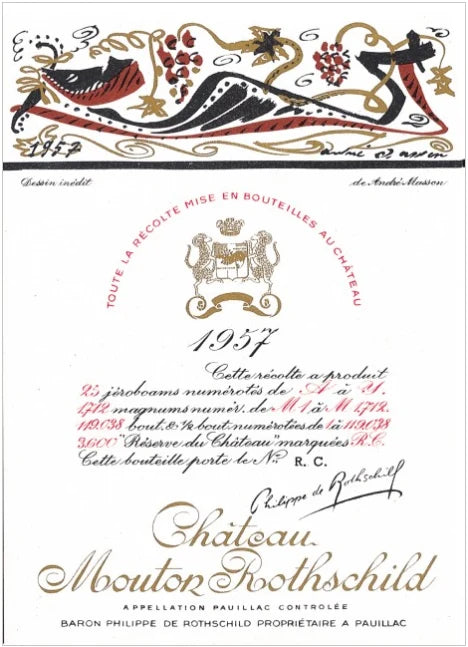 1957 André Masson
Dessin inédit de André Masson
TOUTE LA RÉCOLTE MISE EN BOUTEILLES AU CHÂTEAU
1957
Cette récolte a produit
25 jéroboams numérotés de A à Y.
1.712 magnums numér. de M 1 à M 1.712.
119.038 bout. & ½ bout. numérotées de 1 à 119.038
3.600 "Réserve du Château" marquées R.C.
Cette bouteille porte le No. R. C.
Philippe de Rothschild
Château
Mouton Rothschild
APPELLATION PAUILLAC CONTROLÉE
BARON PHILIPPE DE ROTHSCHILD PROPRIÉTAIRE A PAUILLAC